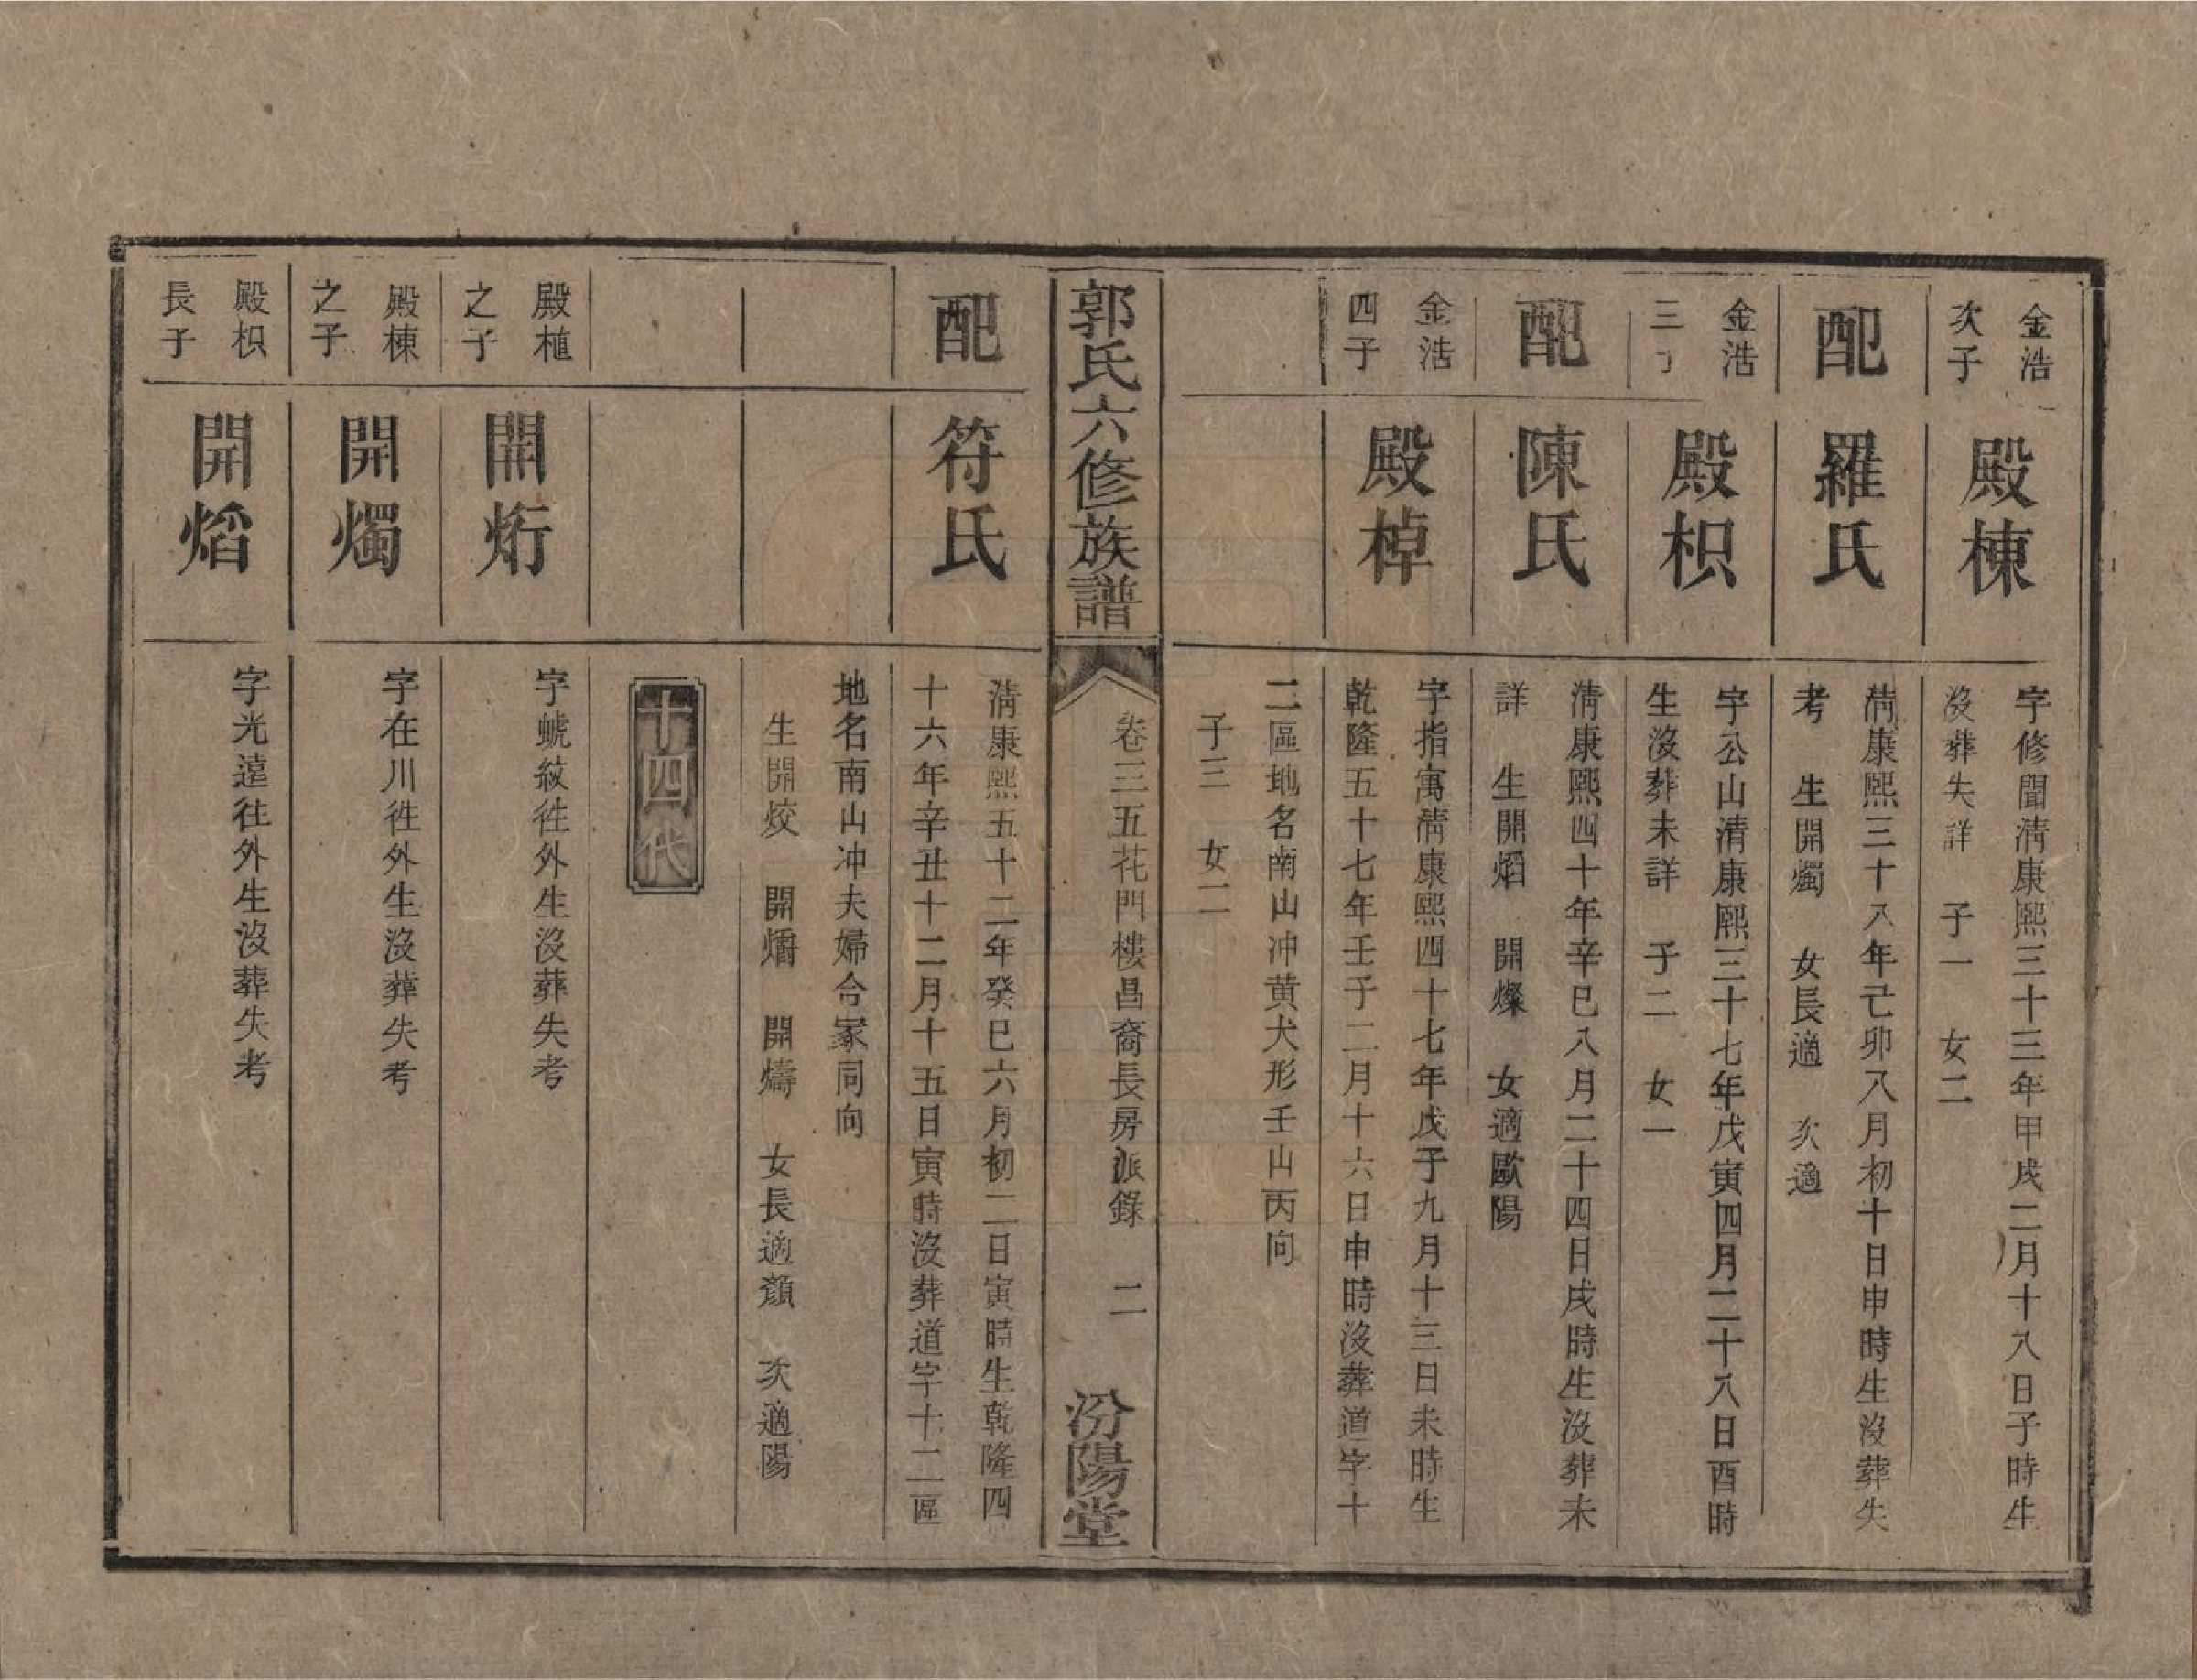 金浩
次子
殿棟
字修聞淸康熙三十三年甲戌二月十八日子時生
沒葬失詳　子一　女二
配
羅氏
淸康熙三十八年己卯八月初十日申時生沒葬失
考　生開燭　女長適　次適
金浩
三
殿枳
字公山清康熙三十七年戊寅四月二十八日酉時
生沒葬未詳　子二　女一
配
陳氏
淸康熙四十年辛巳八月二十四日戌時生沒葬未
詳　生開熖　開燦　女適歐陽
金浩
四子
殿棹
字指寓淸康熙四十七年戊子九月十三日未時生
乾隆五十七年壬子二月十六日申時沒葬道字十
二區地名南山冲黄犬形壬山丙向
子三　女二
郭氏六修族譜
卷三五花門樓昌裔長房派錄　二
汾陽堂
配
符氏
淸康熙五十二年癸巳六月初二日寅時生乾隆四
十六年辛丑十二月十五日寅時沒葬道字十二區
地名南山冲夫婦合冢同向
生開烄　開燏　開燽　女長適顏　次適陽
十四代
殿植
之子
開烆
字虢紋徃外生沒葬失考
殿棟
之子
開燭
字在川徃外生沒葬失考
殿枳
長子
開熖
字光遠往外生沒葬失考